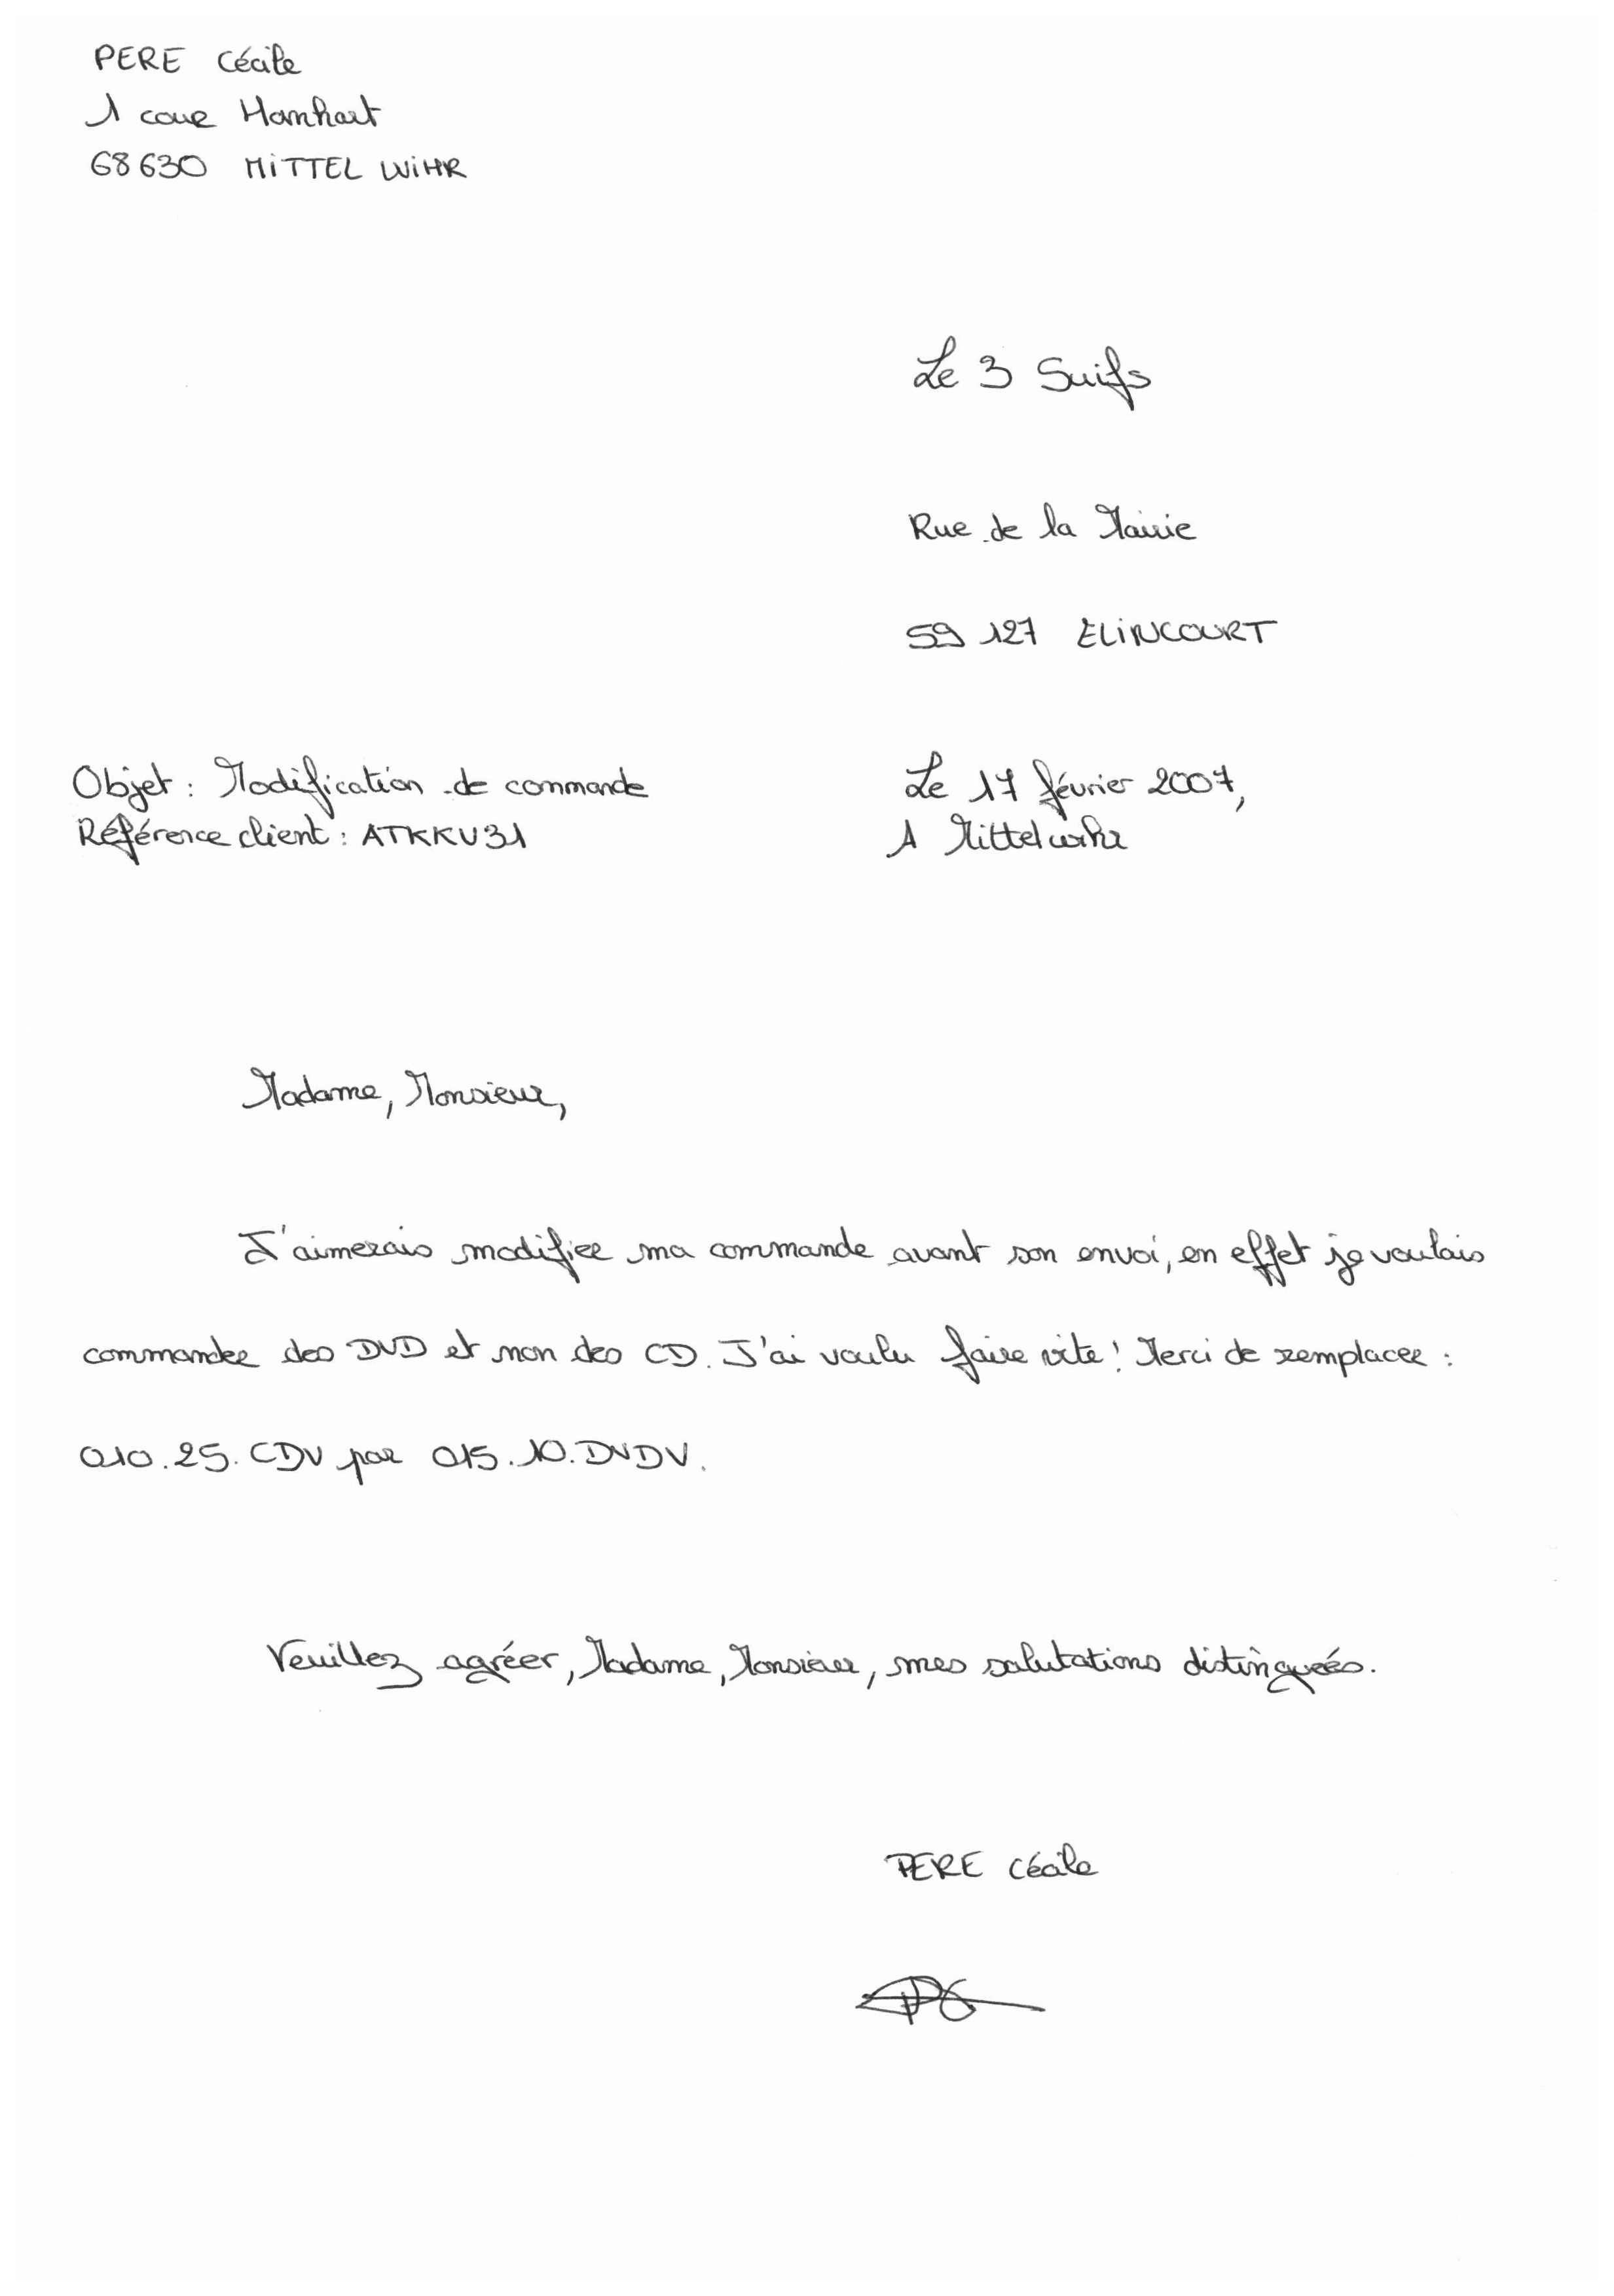 PERE Cécile
1 cour Hanhart
68630 MITTEL WIHR
Le 3 Suifs
Rue de la Mairie
59 127 ELINCOURT
Objet : Modification de commande
Le 17 février 2007,
Référence client : ATKKU31
A Mittelwihr
Madame, Monsieur,
J'aimerais modifier ma commande avant son envoi, en effet je voulais
commander des DVD et non des CD. J'ai voulu faire vite ! Merci de remplacer :
010.25.CDV par 015.10.DVDV.
Veuillez agréer, Madame, Monsieur, mes salutations distinguées.
PERE Cécile